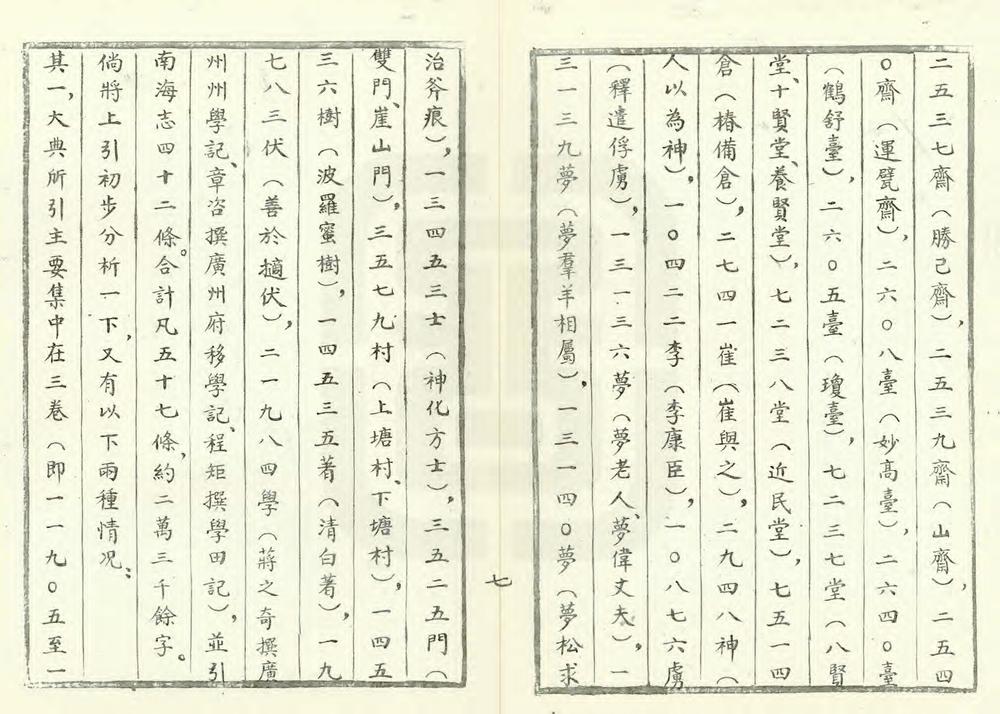 二五三七齋（勝己齋），二五三九齋（山齋），二五四
〇齋（運甓齋），二六〇八臺（妙高臺），二六四〇臺
（鶴舒臺），二六〇五臺（瓊臺），七二三七堂（八賢
堂、十賢堂、養賢堂），七二三八堂（近民堂），七五一四
倉（椿備倉），二七四一崔（崔與之），二九四八神（
人以為神），一〇四二二李（李康臣），一〇八七六虜
（釋遣俘虜），一三一三六夢（夢老人、夢偉丈夫），一
三一三九夢（夢羣羊相屬），一三一四〇夢（夢松求
七
治斧痕），一三四五三士（神化方士），三五二五門（
雙門、崖山門），三五七九村（上塘村、下塘村），一四五
三六樹（波羅蜜樹），一四五三五著（清白著），一九
七八三伏（善於擿伏），二一九八四學（蔣之奇撰廣
州州學記、章咨撰廣州府移學記、程矩撰學田記），並引
南海志四十二條。合計凡五十七條，約二萬三千餘字。
倘將上引初步分析一下，又有以下兩種情况：
其一，大典所引主要集中在三卷（即一一九〇五至一